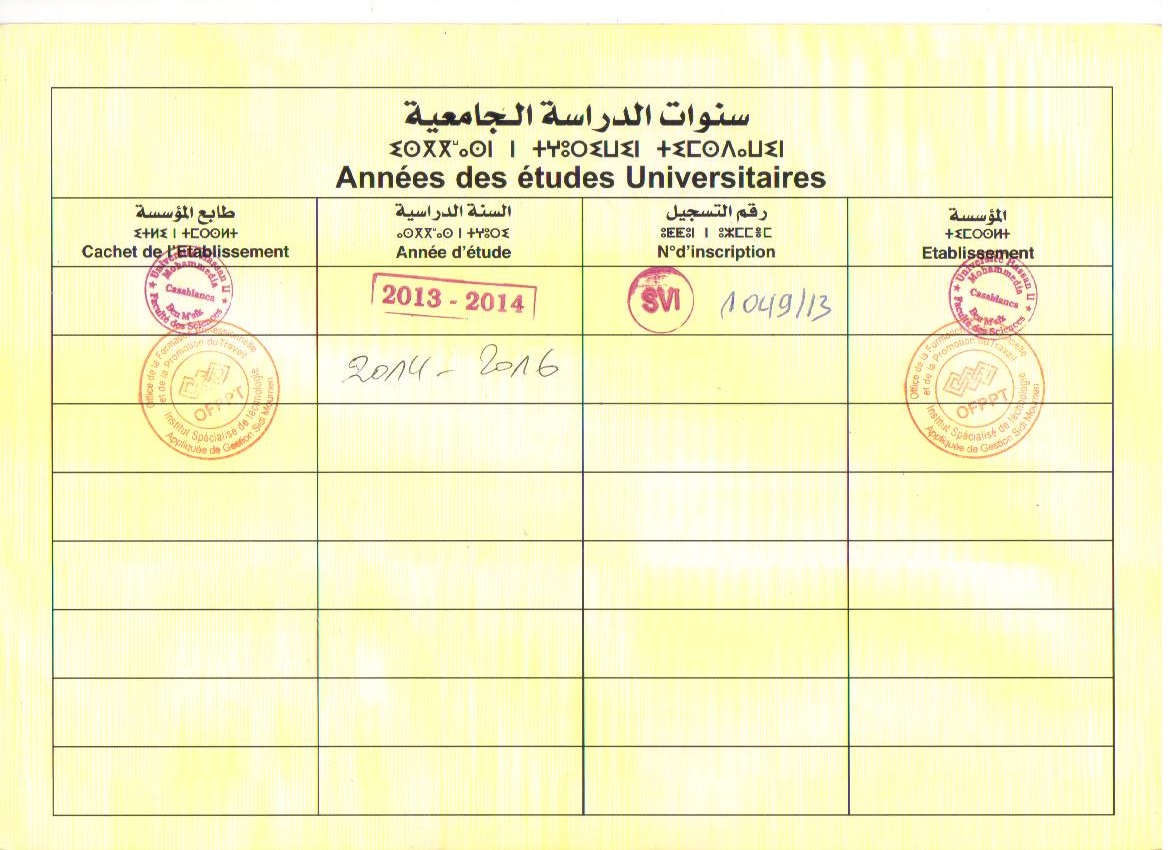 سنوات الدراسة الجامعية
ⵉⵙⴳⴳⵯⴰⵙⵏ ⵏ ⵜⵖⵓⵔⵉⵡⵉⵏ ⵜⵉⵎⵙⴷⴰⵡⵉⵏ
Années des études Universitaires
طابع المؤسسة
ⵉⵜⵍⵉ ⵏ ⵜⵎⵔⵙⵍⵜ
Cachet de l'Etablissement
السنة الدراسية
ⴰⵙⴳⴳⵯⴰⵙ ⵏ ⵜⵖⵓⵔⵉ
Année d'étude
رقم التسجيل
ⵓⵟⵟⵓⵏ ⵏ ⵓⵣⵎⵎⴻⵎ
N°d'inscription
المؤسسة
Etablissement
Université Hassan II
Mohammedia
Casablanca
Ben M'sik
Faculté des Sciences
2013 - 2014
SVI
1049/13
Université Hassan II
Mohammedia
Casablanca
Ben M'sik
Faculté des Sciences
Office de la Formation Professionnelle
et de la Promotion du Travail
OFPPT
Institut Spécialisé de technologie
Appliquée de Gestion Sidi Moumen
2014 - 2016
Office de la Formation Professionnelle
et de la Promotion du Travail
OFPPT
Institut Spécialisé de technologie
Appliquée de Gestion Sidi Moumen